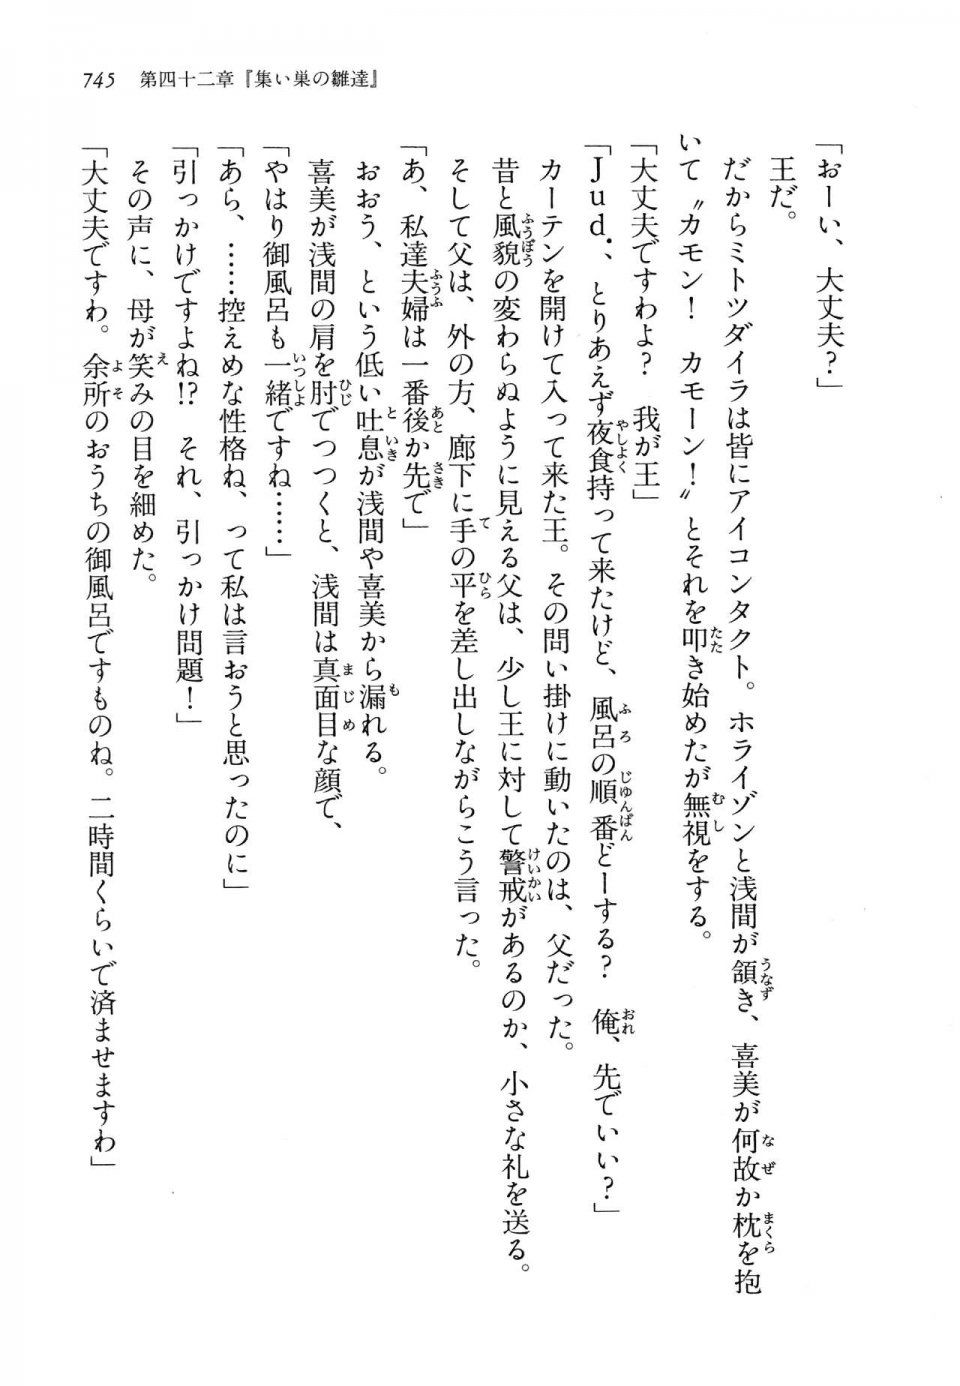 745　第四十二章『集い巣の雛達』
「おーい、大丈夫？」
王だ。
だからミトツダイラは皆にアイコンタクト。ホライゾンと浅間が頷き、喜美が何故か枕を抱
いて〝カモン！　カモーン！〟とそれを叩き始めたが無視をする。
「大丈夫ですわよ？　我が王」
「Jud.、とりあえず夜食持って来たけど、風呂の順番どーする？　俺、先でいい？」
カーテンを開けて入って来た王。その問い掛けに動いたのは、父だった。
昔と風貌の変わらぬように見える父は、少し王に対して警戒があるのか、小さな礼を送る。
そして父は、外の方、廊下に手の平を差し出しながらこう言った。
「あ、私達夫婦は一番後か先で」
おおう、という低い吐息が浅間や喜美から漏れる。
喜美が浅間の肩を肘でつつくと、浅間は真面目な顔で、
「やはり御風呂も一緒ですね……」
「あら、……控えめな性格ね、って私は言おうと思ったのに」
「引っかけですよね!?　それ、引っかけ問題！」
その声に、母が笑みの目を細めた。
「大丈夫ですわ。余所のおうちの御風呂ですものね。二時間くらいで済ませますわ」